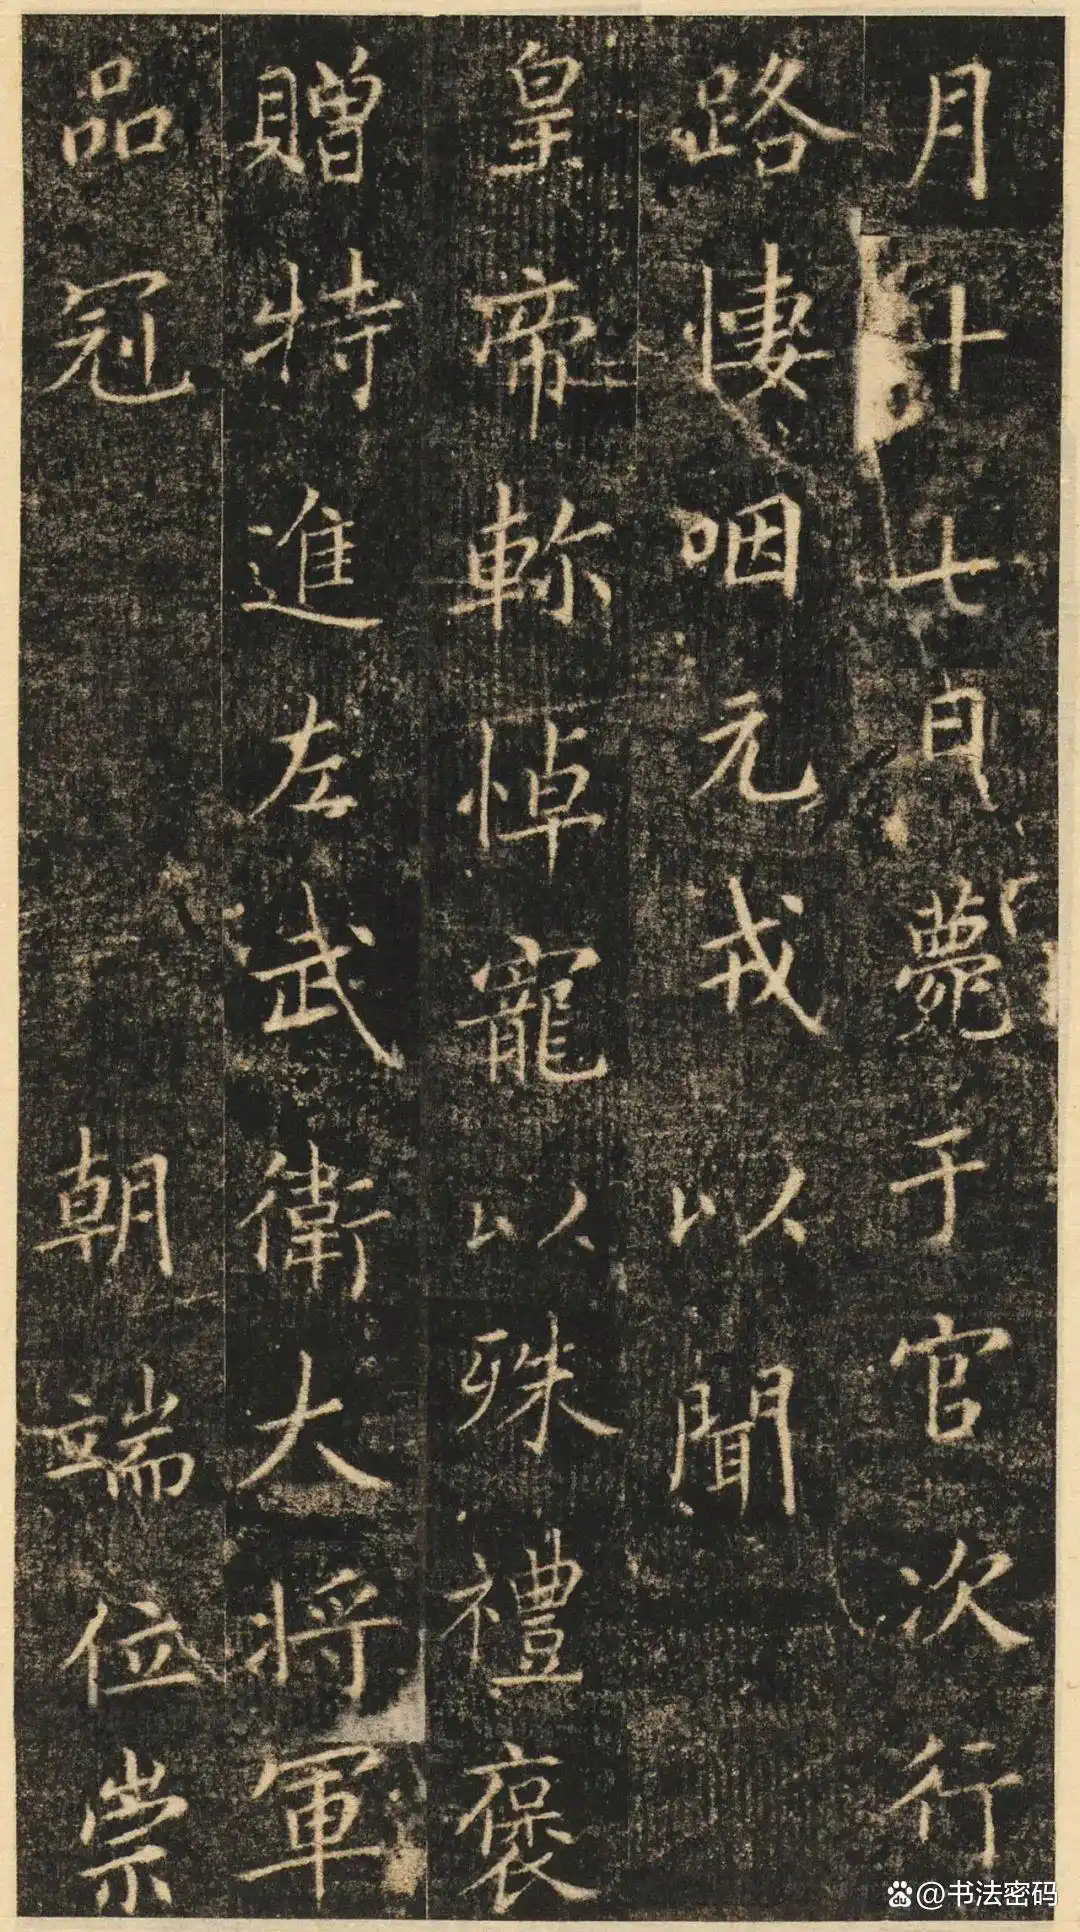 月十七日薨于官次行
路悽咽元戎以聞
皇帝軫悼寵以殊禮褒
贈特進左武衛大將軍
品冠朝端位崇
@书法密码